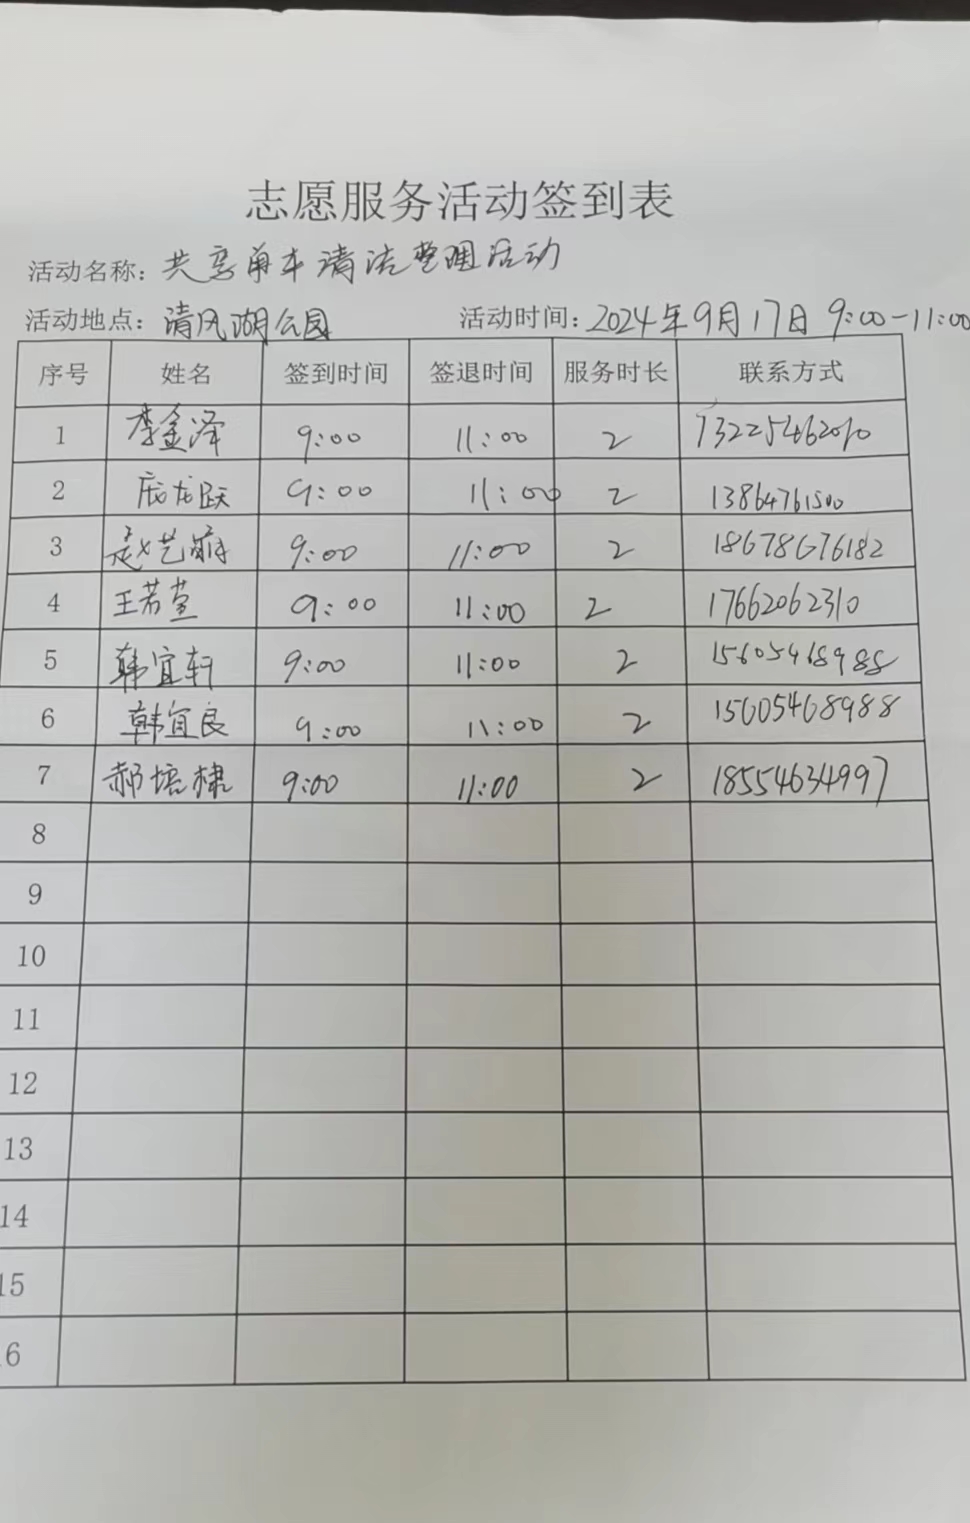 志愿服务活动签到表
活动名称：共享单车清洁整理活动
活动地点：清风湖公园 活动时间：2024年9月17日 9:00-11:00
序号 姓名 签到时间 签退时间 服务时长 联系方式
1 李金泽 9:00 11:00 2
2 庞龙跃 9:00 11:00 2 13864761500
3 赵艺 9:00 11:00 2 18678676182
4 王若萱 9:00 11:00 2 17662062310
5 韩宜轩 9:00 11:00 2 15605468988
6 韩宜良 9:00 11:00 2 15605468988
7 郝培棣 9:00 11:00 2 18554634997
8
9
10
11
12
13
14
15
6